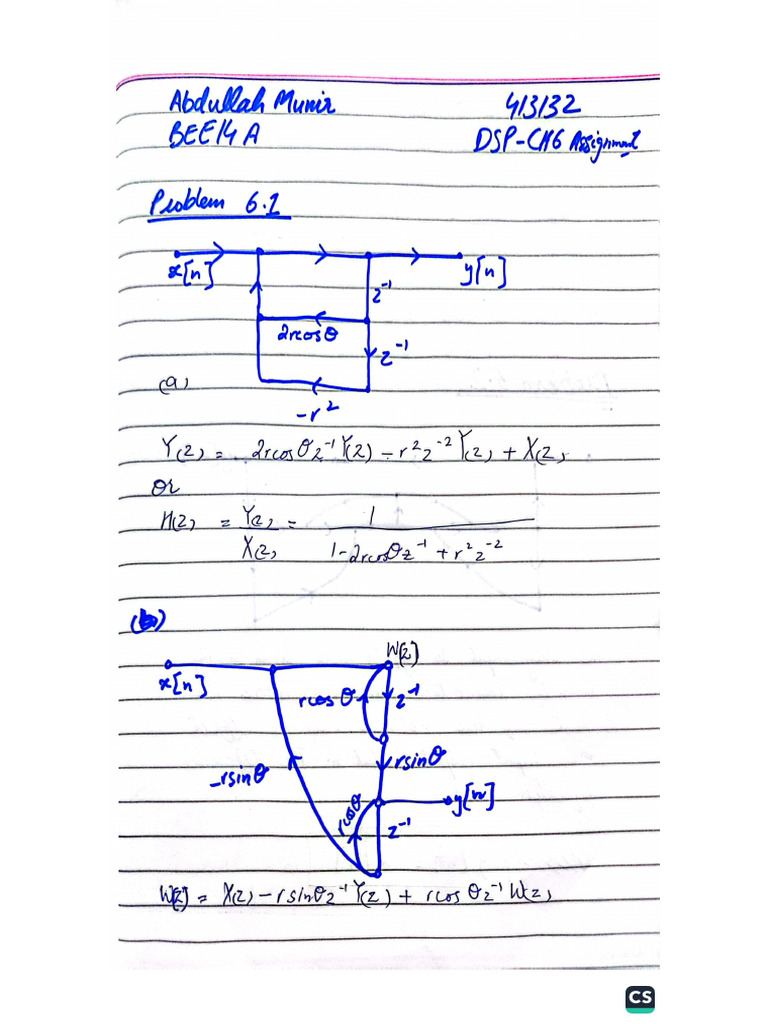 Abdullah Munir 413132
BEE14A DSP-CH6 Assignment
Problem 6.1
x[n] y[n]
z⁻¹
2rcosθ
z⁻¹
(a)
-r²
Y(z) = 2rcosθz⁻¹Y(z) - r²z⁻²Y(z) + X(z)
or
H(z) = Y(z)/X(z) = 1/(1-2rcosθz⁻¹ + r²z⁻²)
(b)
W[z]
x[n]
rcosθ z⁻¹
rsinθ
-rsinθ
rcosθ y[n]
z⁻¹
W[z] = X(z) - rsinθz⁻¹Y(z) + rcosθz⁻¹W(z)
CS